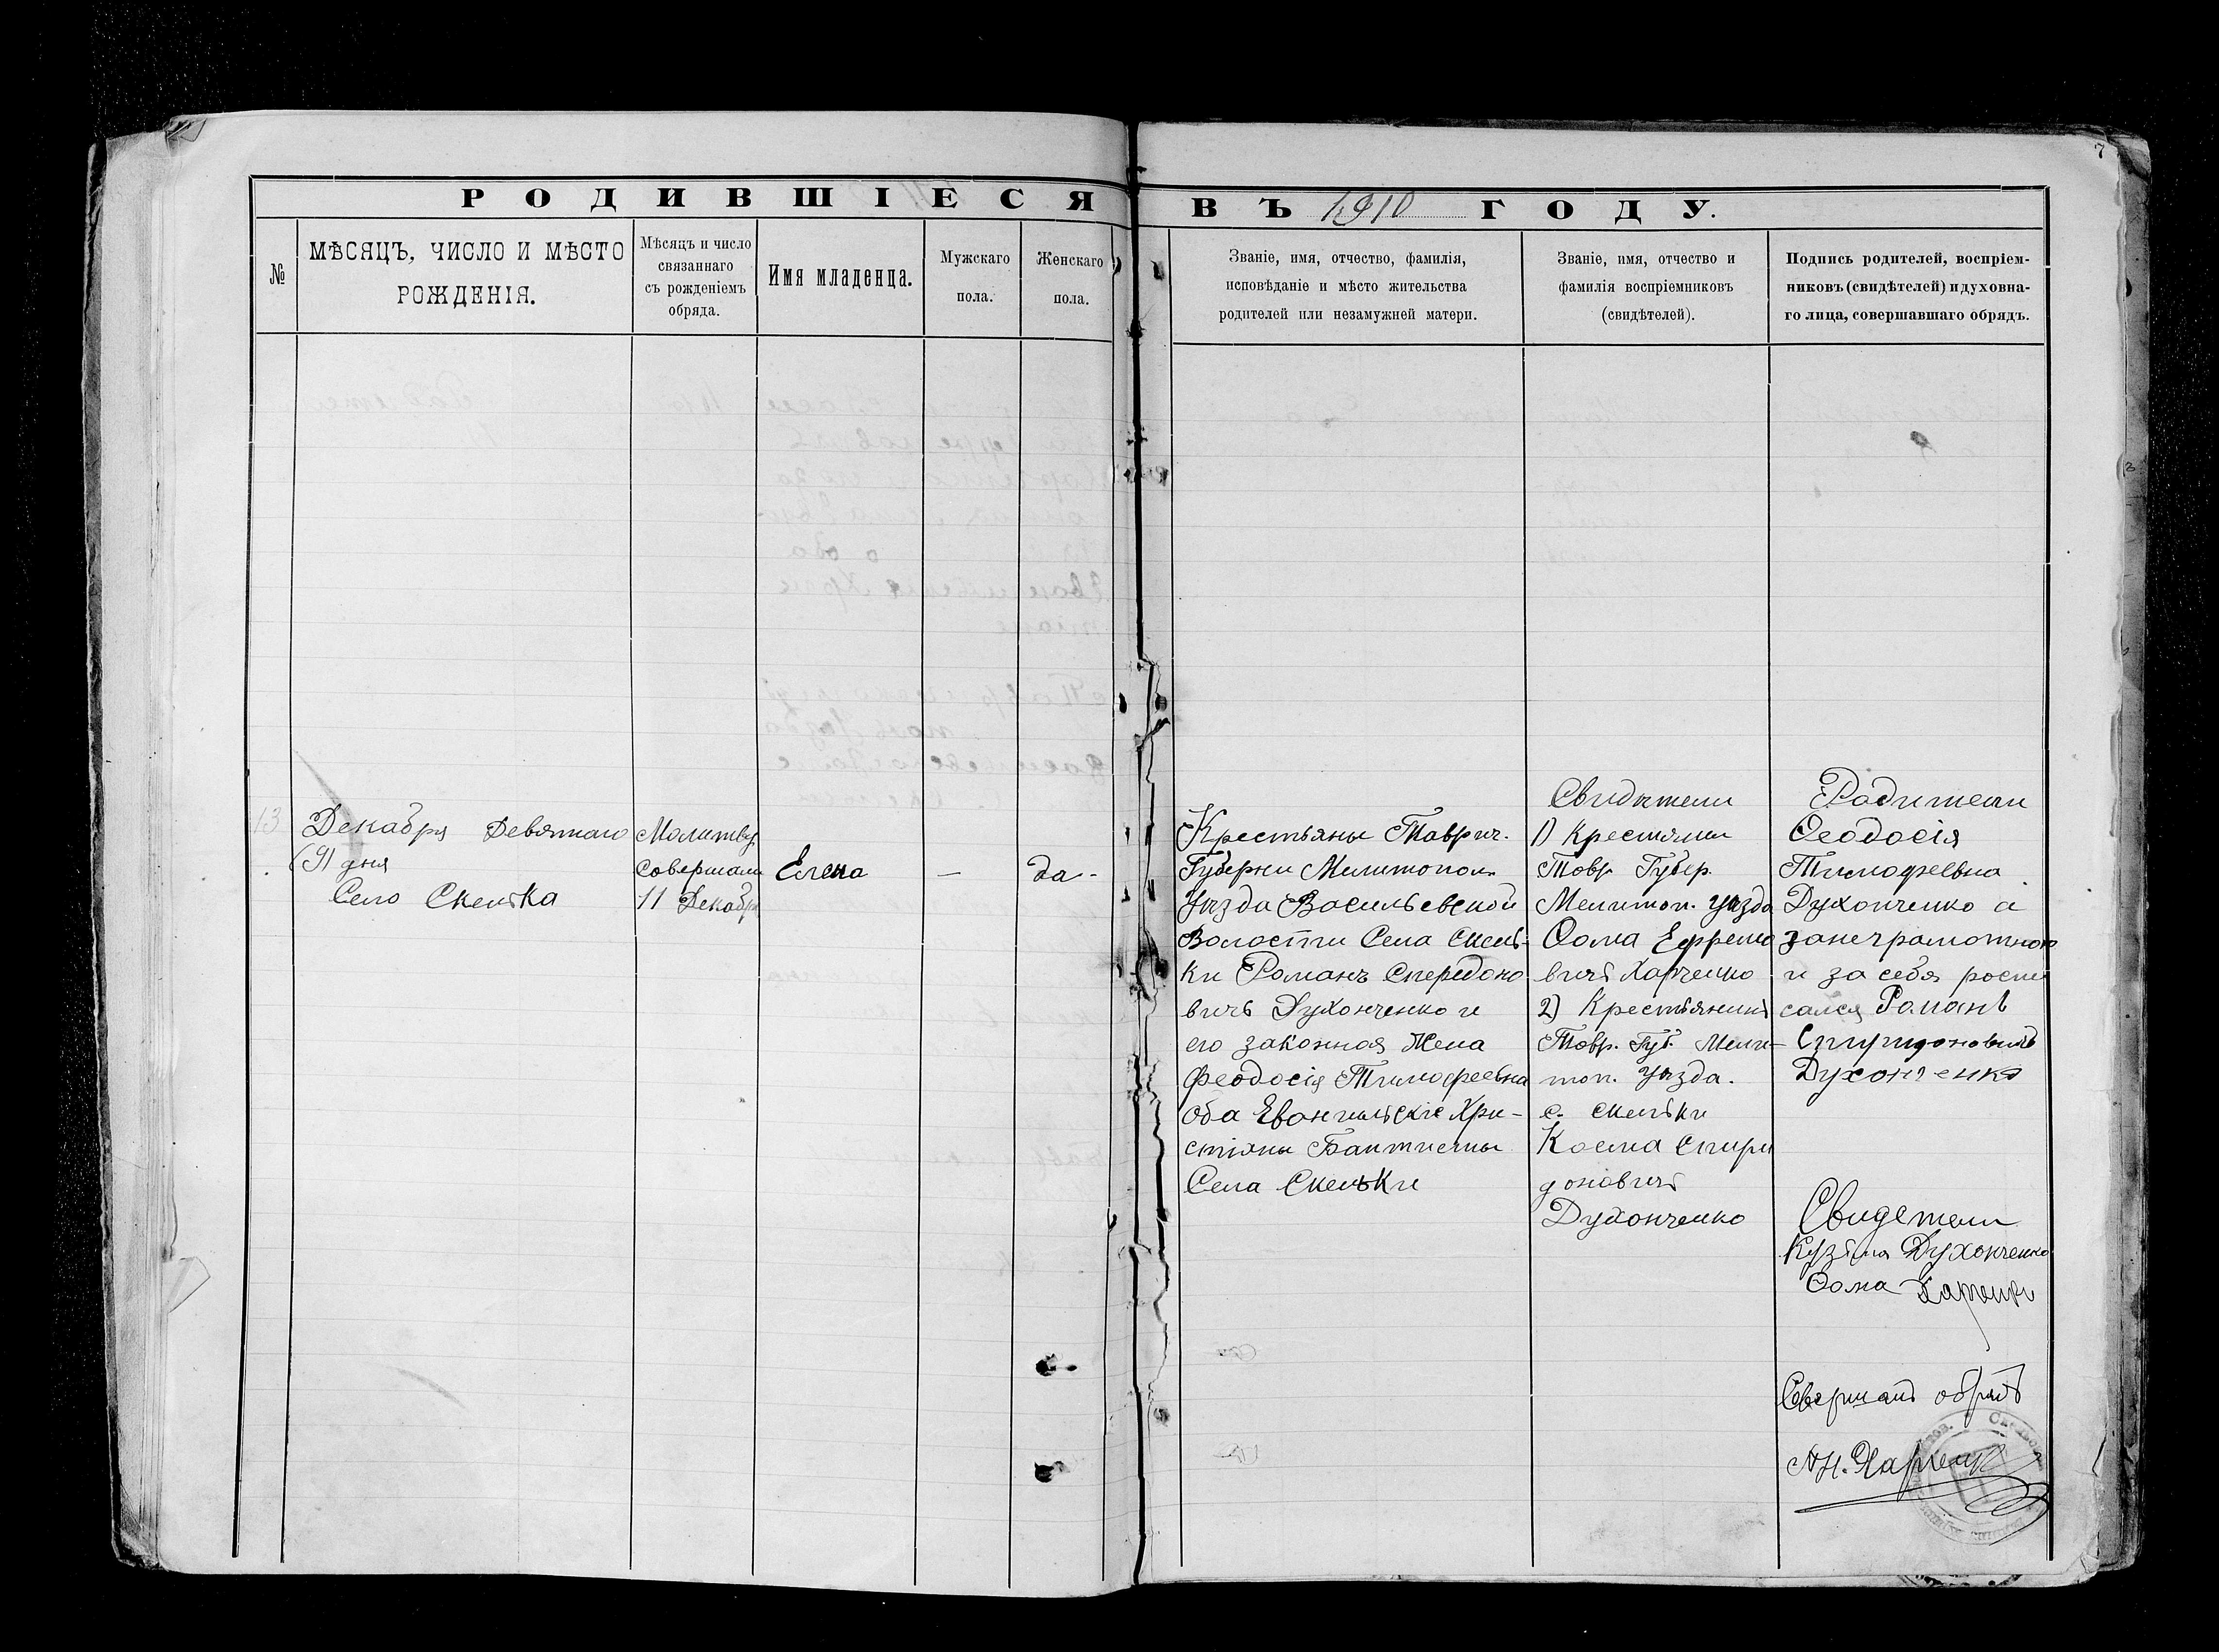 7
РОДИВШІЕСЯ ВЪ 1910 ГОДУ.
№
МѢСЯЦЪ, ЧИСЛО И МѢСТО
РОЖДЕНІЯ.
Мѣсяцъ и число
связаннаго
съ рожденіемъ
обряда.
Имя младенца.
Мужскаго
пола.
Женскаго
пола.
Званіе, имя, отчество, фамилія,
исповѣданіе и мѣсто жительства
родителей или незамужней матери.
Званіе, имя, отчество и
фамилія воспріемниковъ
(свидѣтелей).
Подпись родителей, воспріем-
никовъ (свидѣтелей) и духовна-
го лица, совершавшаго обрядъ.
13
Декабря Девятаго
(9) дня
Село Скелька
Молитву
совершали
11 Декабр
Елена
—
да-
Крестьяны Таврич.
Губерни Мелитопол.
Уѣзда Васильевской
Волости Села Скель-
ки Романъ Спередоно
вичъ Духонченко и
его законная Жена
Феодосія Тимофеевна
оба Евангельскіе Хри-
стіяны Баптисты
Села Скельки
Свидѣтели
1) Крестяни
Товр. Губер.
Мелитоп. Уѣзда
Ѳома Ефремо
вичъ Харченко
2) Крестьянинъ
Товр. Губ. Мели-
топ. Уѣзда.
с. Скельки
Косма Спири
доновичъ
Духонченко
Родители
Ѳеодосія
Тимофеевна
Духонченко а
за неграмотною
и за себя роспи
сался Романъ
Спиридоновичъ
Духонченко
Свидетели
Кузьма Духонченко
Ѳома Харченко
Свершалъ обрядъ
Ан. Харченко